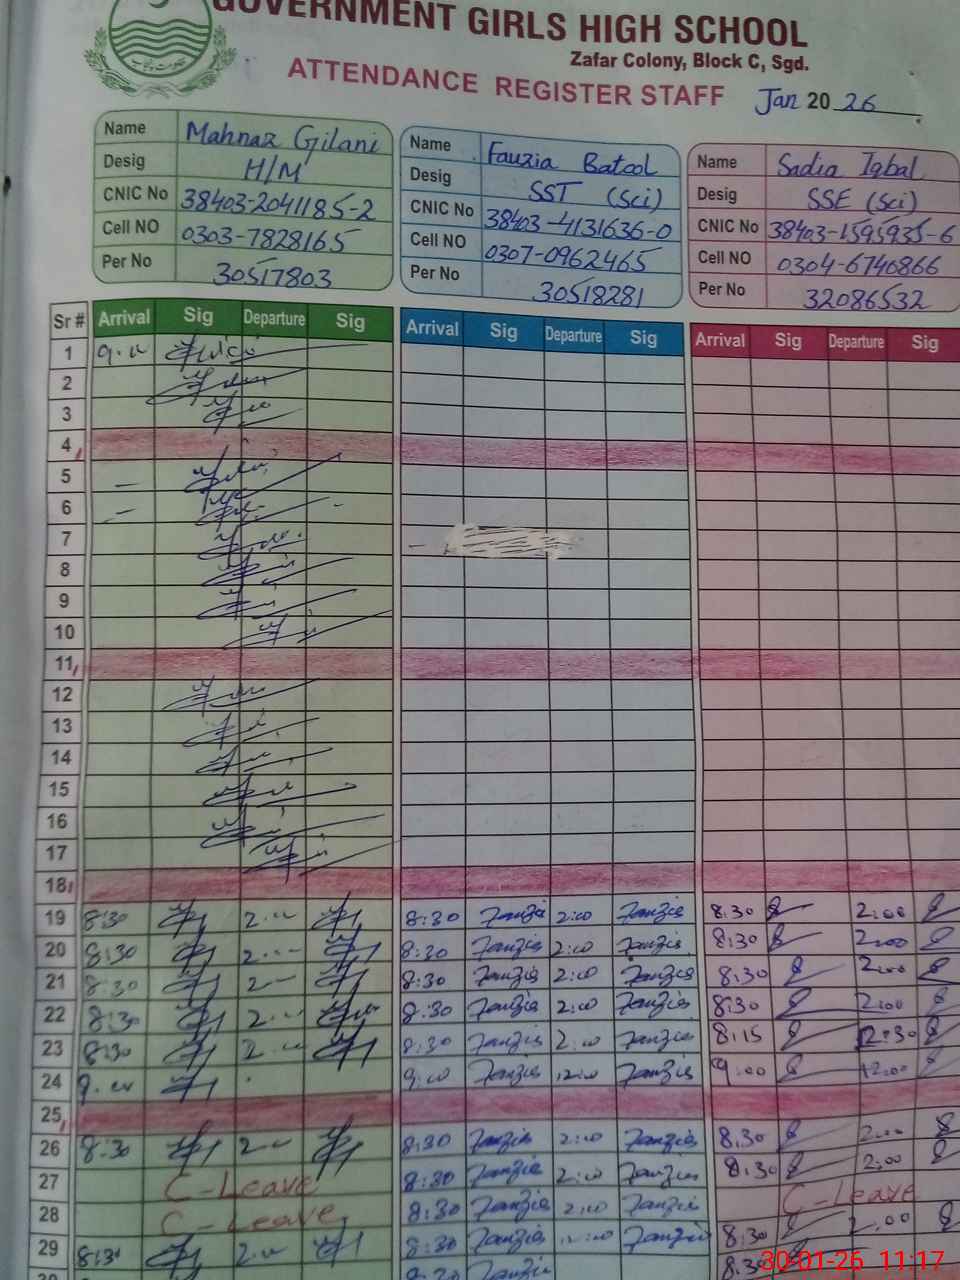 GOVERNMENT GIRLS HIGH SCHOOL
Zafar Colony, Block C, Sgd.
حکومت پنجاب
ATTENDANCE REGISTER STAFF Jan 20 26
Name Mahnaz Gilani
Desig H/M
CNIC No 38403-2041185-2
Cell NO 0303-7828165
Per No 30517803
Name Fauzia Batool
Desig SST (Sci)
CNIC No 38403-4131636-0
Cell NO 0307-0962465
Per No 30518281
Name Sadia Iqbal
Desig SSE (Sci)
CNIC No 38403-1595935-6
Cell NO 0304-6740866
Per No 32086532
Sr # Arrival Sig Departure Sig Arrival Sig Departure Sig Arrival Sig Departure Sig
1
2
3
4
5
6
7
8
9
10
11
12
13
14
15
16
17
18
19 8:30 8:30 Fauzia 2:00 Fauzia 8:30 2:00
20 8:30 8:30 Fauzia 2:00 Fauzia 8:30 2:00
21 8:30 8:30 Fauzia 2:00 Fauzia 8:30 2:00
22 8:30 8:30 Fauzia 2:00 Fauzia 8:30 2:00
23 8:30 8:30 Fauzia 2:00 Fauzia 8:15 12:30
24 9:00 Fauzia 12:00 Fauzia 9:00 12:00
25
26 8:30 8:30 Fauzia 2:00 Fauzia 8:30 2:00
27 C-Leave 8:30 Fauzia 2:00 Fauzia 8:30 2:00
28 C-Leave 8:30 Fauzia 2:00 Fauzia C-Leave
29 8:30 8:30 Fauzia Fauzia 8:30 2:00
8:30 Fauzia 8:30
30-01-26 11:17